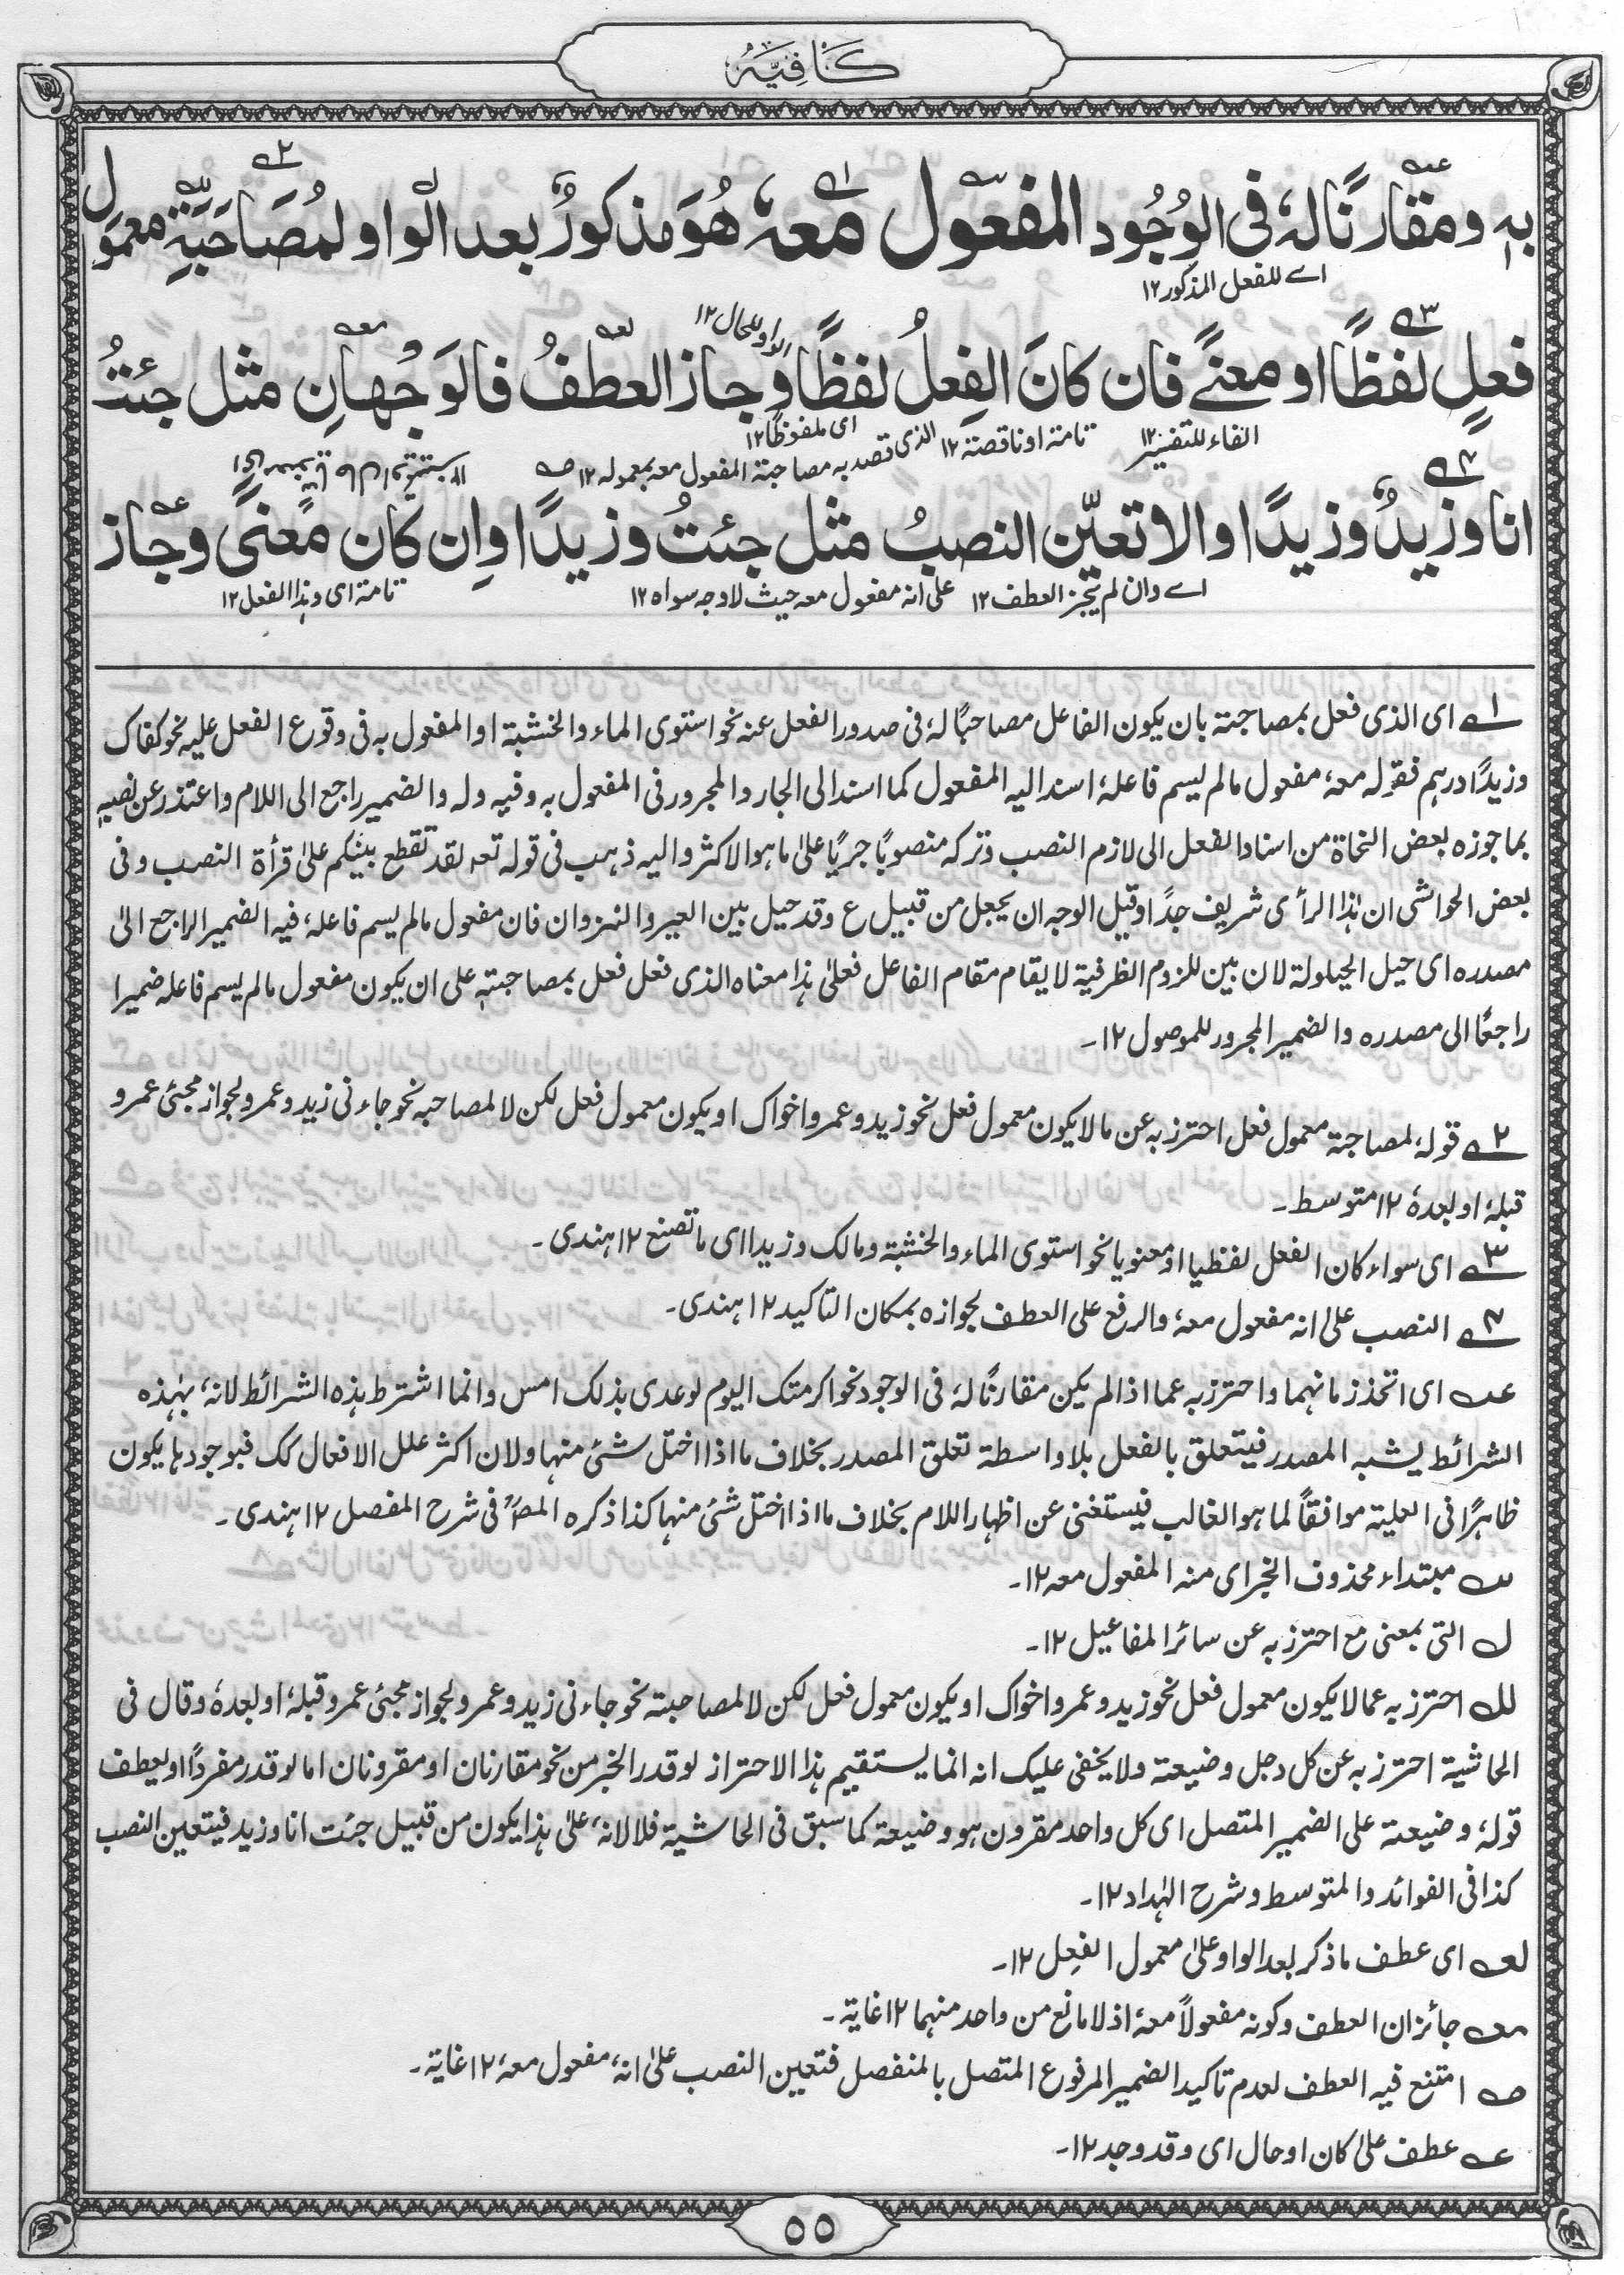 كَافِيَه
بِهٖ ومقارنًا لهٗ فى الوُجُود المفعول معهٗ هُوَ مذكورٌ بعد الواو لمُصَاحَبَةِ معمول
اے للفعل المذكور ١٢
فعلٍ لفظًا او معنًے فان كانَ الفِعلُ لفظًا وجاز العطفُ فالوَجْهانِ مثل جئتُ
الواو للحال ١٢
الفاء للتفسير ١٢ تامة او ناقصة ١٢ الذى قصد به مصاحبة المفعول معه بمعموله ١٢ اى ملفوظًا ١٢
انا وزيدٌ وزيدًا والا تعيّن النصبُ مثل جئتُ وزيدًا وان كان معنًى وجاز
اے وان لم يجز العطف ١٢ على انه مفعول معه حيث لا وجه سواه ١٢ تامة اى وہذا الفعل ١٢
١ے اى الذى فعل بمصاحبة بان يكون الفاعل مصاحبًا لهٗ فى صدور الفعل عنه نحو استوى الماء والخشبة او المفعول به فى وقوع الفعل عليه نحو كفاك
وزيدًا درہم فقوله معهٗ مفعول مالم يسم فاعلهٗ اسند اليه المفعول كما اسند الى الجار والمجرور فى المفعول به وفيه وله والضمير راجع الى اللام واعتذر عن نصبهٖ
بما جوزه بعض النحاة من اسناد الفعل الى لازم النصب وتركه منصوبًا جريًا علىٰ ما ہو الاكثر واليه ذہب فى قوله تعہ لقد تقطع بينكم علىٰ قرأة النصب وفى
بعض الحواشى ان ہذا الرأى شريف جدًا وقيل الوجه ان يجعل من قبيل ع وقد حيل بين العير والنزوان فان مفعول مالم يسم فاعلهٗ فيه الضمير الراجع الىٰ
مصدره اى حيل الحيلولة لان بين للزوم الظرفية لا يقام مقام الفاعل فعلىٰ ہذا معناه الذى فعل فعل بمصاحبتهٖ على ان يكون مفعول مالم يسم فاعله ضميرا
راجعًا الى مصدره والضمير المجرور للموصول ١٢۔
٢ے قولهٗ لمصاحبة معمول فعل احترز به عن ما لا يكون معمول فعل نحو زيد وعمرو اخواك او يكون معمول فعل لكن لا لمصاحبه نحو جاءنى زيد وعمرو لجواز مجئى عمرو
قبلهٗ او بعدهٗ ١٢ متوسط۔
٣ے اى سواء كان الفعل لفظيا او معنويا نحو استوى الماء والخشبة ومالك وزيدا اى ما تصنع ١٢ ہندى۔
٤ے النصب علىٰ انه مفعول معهٗ والرفع على العطف لجوازه بمكان التاكيد ١٢ ہندى۔
عہ اى اتخذ زمانہما واحترز به عما اذا لم يكن مقارنًا لهٗ فى الوجود نحو اكرمتك اليوم لوعدى بذلك امس وانما اشترط ہذه الشرائط لانهٗ بہذه
الشرائط يشبه المصدر فيتعلق بالفعل بلا واسطة تعلق المصدر بخلاف ما اذا اختل شئ منہا ولان اكثر علل الافعال كك فبوجودہا يكون
ظاہرًا فى العلية موافقًا لما ہو الغالب فيستغنى عن اظہار اللام بخلاف ما اذا اختل شئ منہا كذا ذكره المصؒ فى شرح المفصل ١٢ ہندى۔
سہ مبتداء محذوف الخبر اى منه المفعول معه ١٢۔
ل التى بمعنى مع احترز به عن سائر المفاعيل ١٢۔
لل احترز به عما لا يكون معمول فعل نحو زيد وعمرو اخواك او يكون معمول فعل لكن لا لمصاحبته نحو جاءنى زيد وعمرو لجواز مجئى عمرو قبلهٗ او بعدهٗ وقال فى
الحاشية احترز به عن كل رجل وضيعة ولا يخفى عليك انه انما يستقيم ہذا الاحتراز لو قدر الخبر من نحو مقارنان او مقرونان اما لو قدر مفردًا او يعطف
قولهٗ وضيعة على الضمير المتصل اى كل واحد مقرون ہو وضيعة كما سبق فى الحاشية فلا لانهٗ علىٰ ہذا يكون من قبيل جئت انا وزيد فيتعين النصب
كذا فى الفوائد والمتوسط وشرح الہداد ١٢۔
لعہ اى عطف ما ذكر بعد الواو علىٰ معمول الفعل ١٢۔
معہ جائزان العطف وكونه مفعولاً معهٗ اذ لا مانع من واحد منہما ١٢ غاية۔
صہ امتنع فيه العطف لعدم تاكيد الضمير المرفوع المتصل بالمنفصل فتعين النصب علىٰ انهٗ مفعول معهٗ ١٢ غاية۔
عہ عطف علىٰ كان او حال اى وقد وجد ١٢۔
٥٥